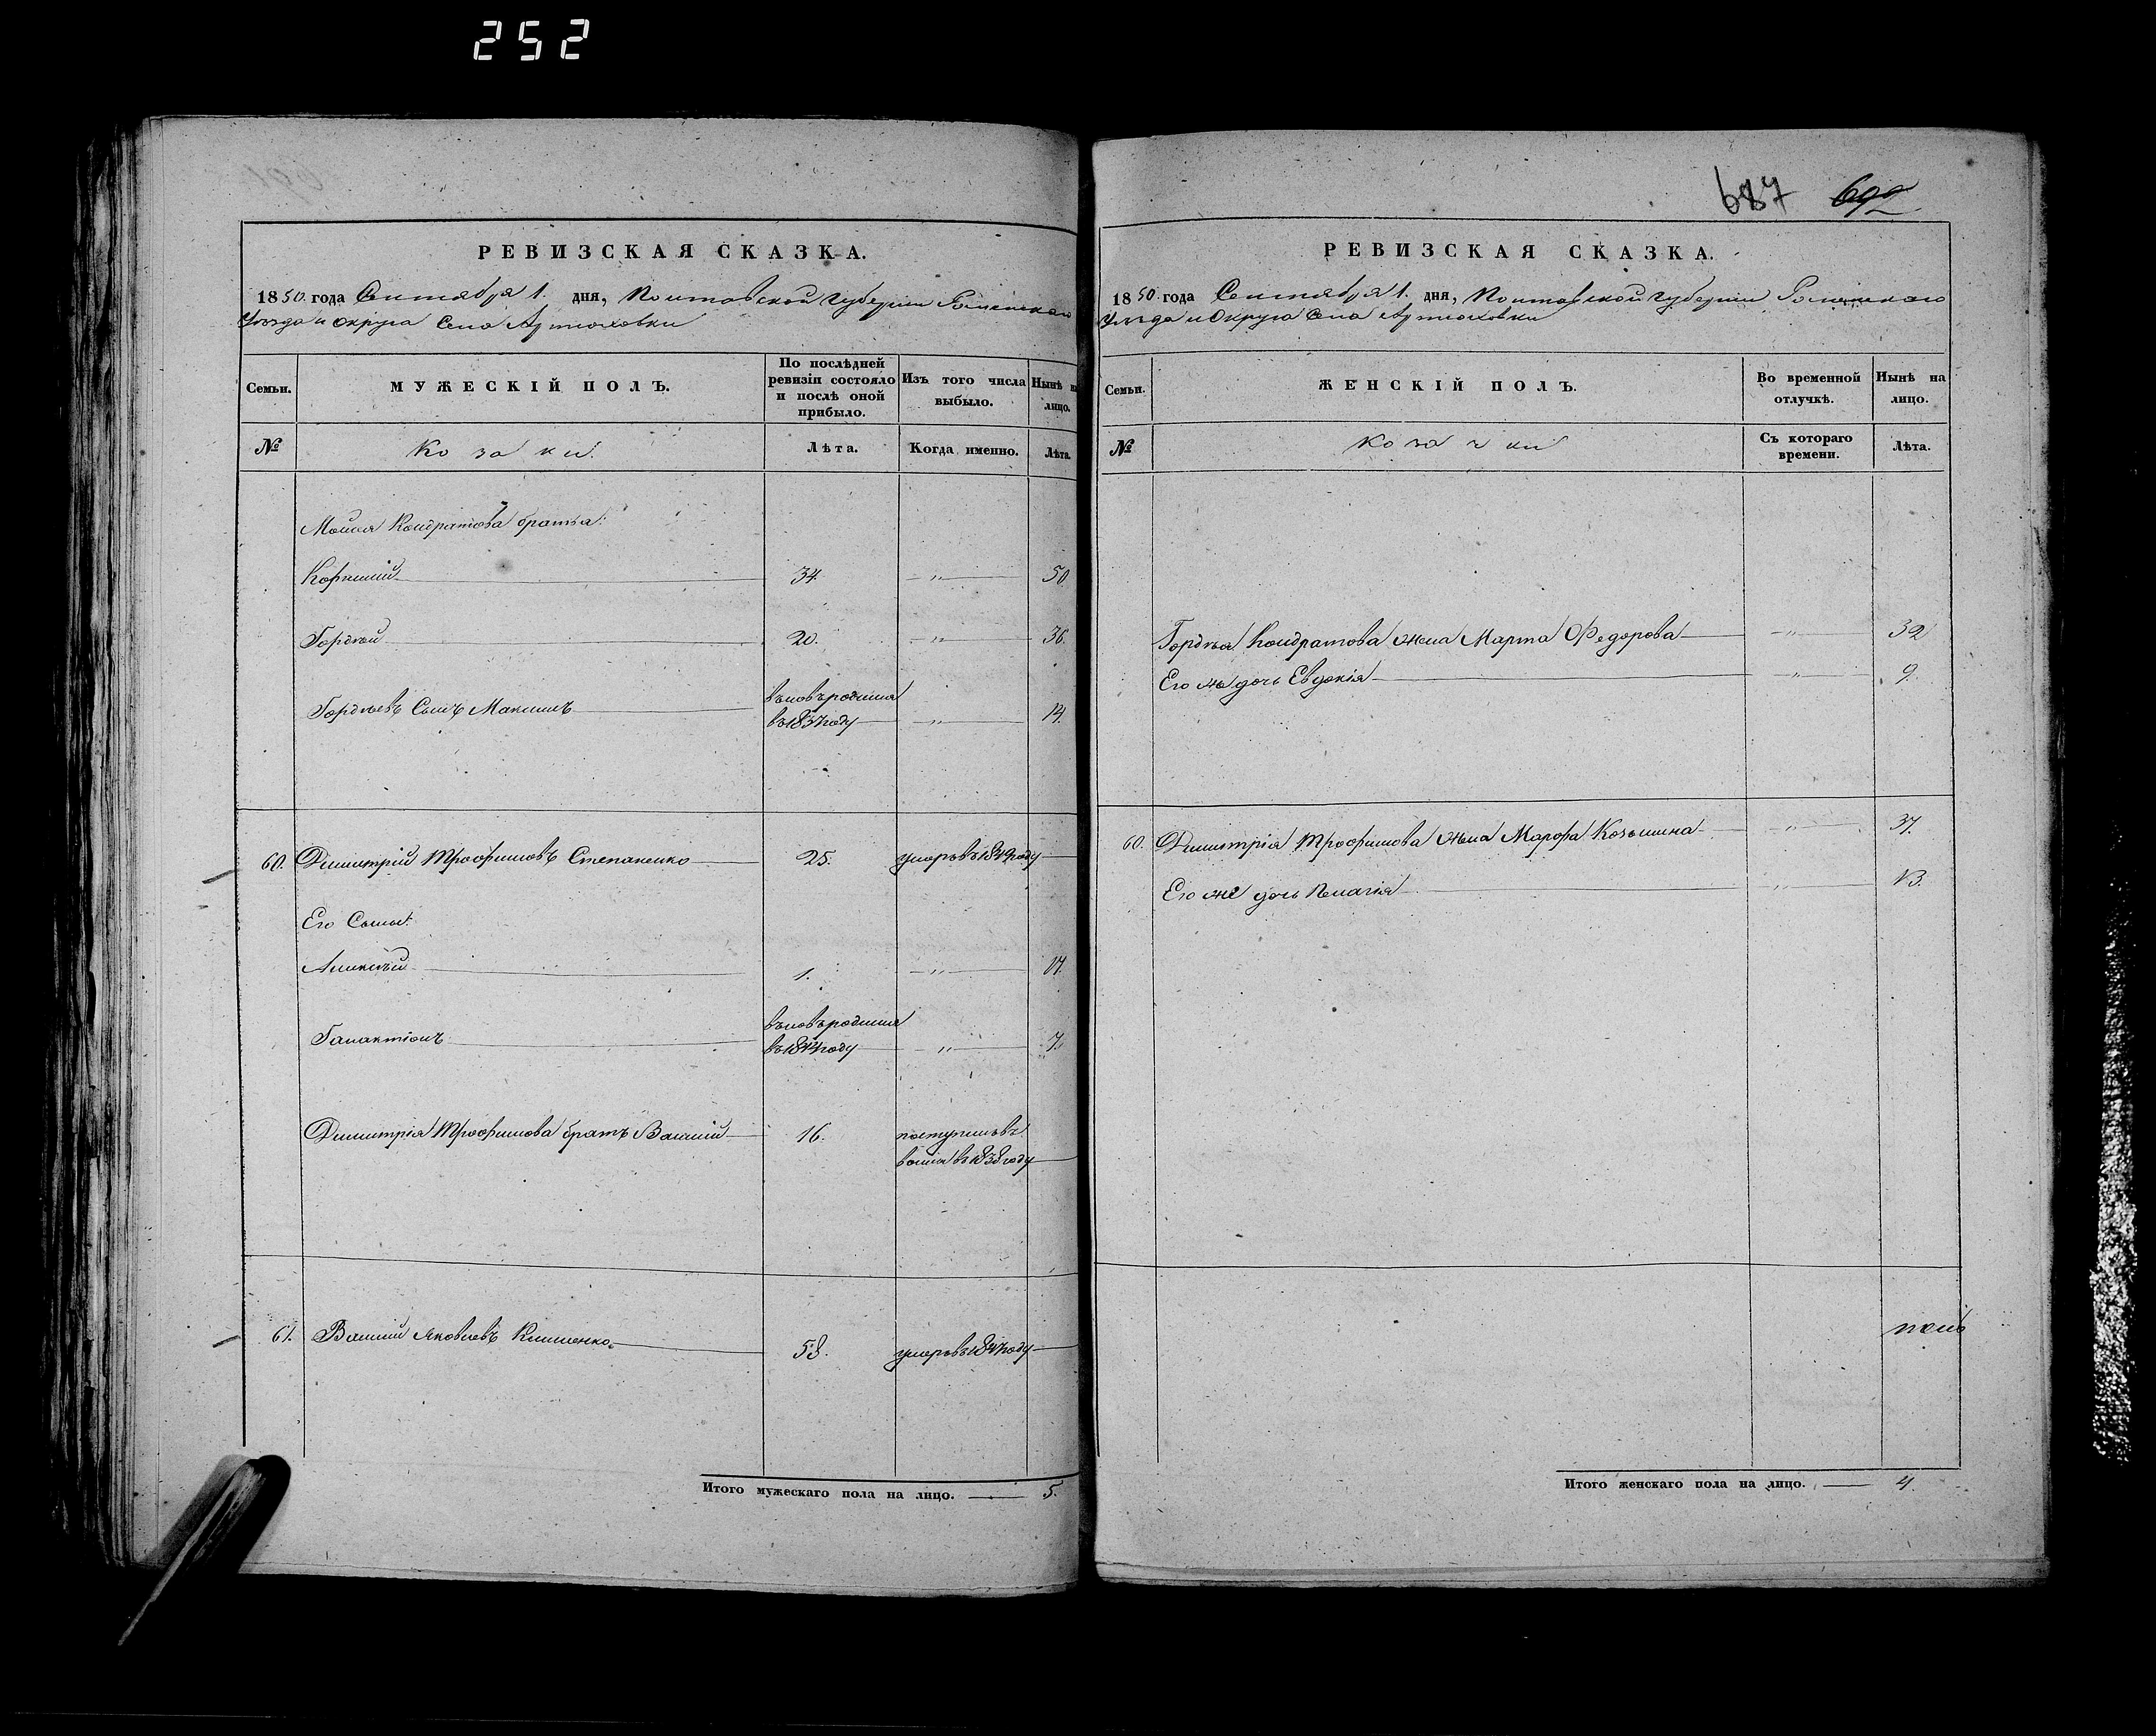 252
РЕВИЗСКАЯ СКАЗКА.
1850. года Сентября 1. дня, Полтавской губерніи Роменскаго
Уезда и округа Села Артюховки
Семьи.
МУЖЕСКІЙ ПОЛЪ.
По послѣдней
ревизіи состояло
и послѣ оной
прибыло.
Изъ того числа
выбыло.
Нынѣ на
лицо.
№
Козаки.
Лѣта.
Когда именно.
Лѣта.
Мойсея Кондратова братья:
Корнилій 34 " 50
Гордѣй 20. " 36.
Гордѣевъ Сынъ Максимъ
вновьродился
въ 1837 году " 14.
60. Димитрій Трофимовъ Степаненко 25. умеръ въ 1849 году
Его Сыны:
Алексѣй 1. " 17.
Галактіонъ
вновьродился
въ 1844 году " 7.
Димитрія Трофимова братъ Василій 16. поступилъ въ
въ 1838 году
61. Василий Яковлевъ Клименко 58. умеръ въ 1847 году
Итого мужескаго пола на лицо. 5.
687 692
РЕВИЗСКАЯ СКАЗКА.
1850. года Сентября 1. дня, Полтавской губерніи Роменскаго
Уезда и Округа Села Артюховки
Семьи.
ЖЕНСКІЙ ПОЛЪ.
Во временной
отлучкѣ.
Нынѣ на
лицо.
№
Козачки
Съ котораго
времени.
Лѣта.
Гордѣя Кондратова жена Марта Федорова " 32
Его же дочь Евдокія " 9.
60. Димитрія Трофимова жена Марфа Козьмина " 37.
Его же дочь Пелагія " 13.
Итого женскаго пола на лицо. 4.